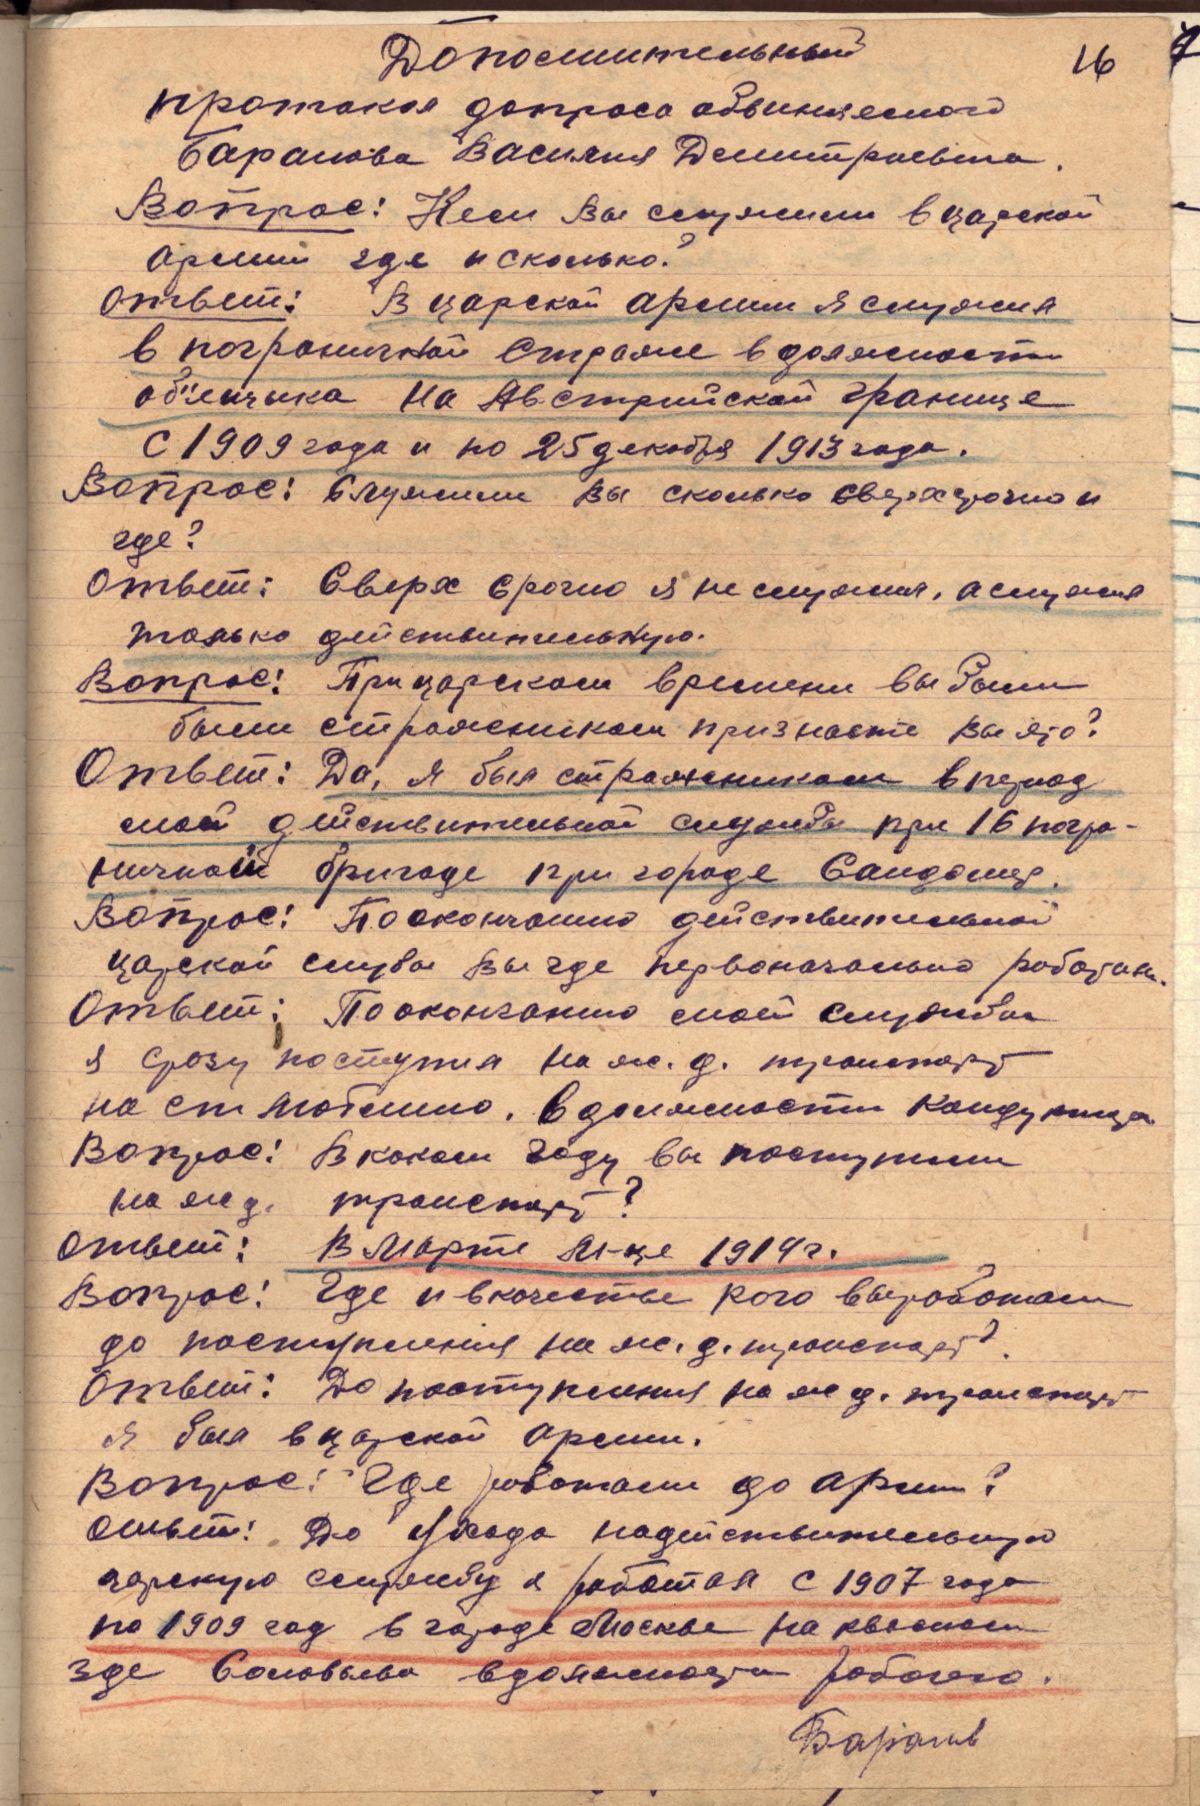 Дополнительный
16
протокол допроса обвиняемого
Баранова Василия Дмитриевича.
Вопрос: Кем вы служили в царской
армии где и сколько?
Ответ: В царской армии я служил
в пограничной страже в должности
об'ещика на Австрийской границе
с 1909 года и по 25 декабря 1913 года.
Вопрос: Служили вы сколько сверхсрочно и
где?
Ответ: Сверх срочно я не служил, а служил
только действительную.
Вопрос: При царском времени вы были
были стражником признаете вы это?
Ответ: Да, я был стражником в период
моей действительной службы при 16 погра-
ничной бригаде при городе Сандомир.
Вопрос: По окончанию действительной
царской службы вы где первоначально работали.
Ответ: По окончанию моей службы
я сразу поступил на ж. д. транспорт
на ст Люблино. в должности кондуктора
Вопрос: В каком году вы поступили
на ж д. транспорт?
Ответ: В Марте м-це 1914 г.
Вопрос: Где и в качестве кого вы работали
до поступления на ж. д. транспорт?
Ответ: До поступления на ж д. транспорт
я был в царской армии.
Вопрос: Где работали до армии?
Ответ: До ухода на действительную
царскую службу я работал с 1907 года
по 1909 год в городе Москве на квасном
зде Соловьева в должности рабочего.
Баранов